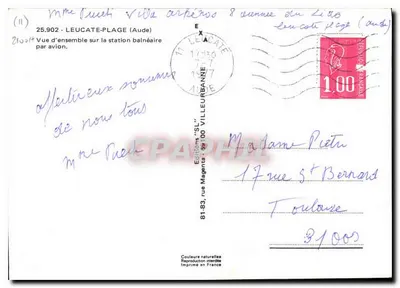 (11)
Mme Vila 8 avenue du
Leucate plage (Aude)
25.902 - LEUCATE-PLAGE (Aude)
Vue d'ensemble sur la station balnéaire
par avion.
11 LEUCATE
AUDE
1.00
affectueux souvenirs
de nous tous
Mme
EXA
Editions "SL"
81-83, rue Magenta 69100 VILLEURBANNE
Madame Pietri
17 rue St Bernard
Toulouse
31000
Couleurs naturelles
Reproduction interdite
Imprimé en France